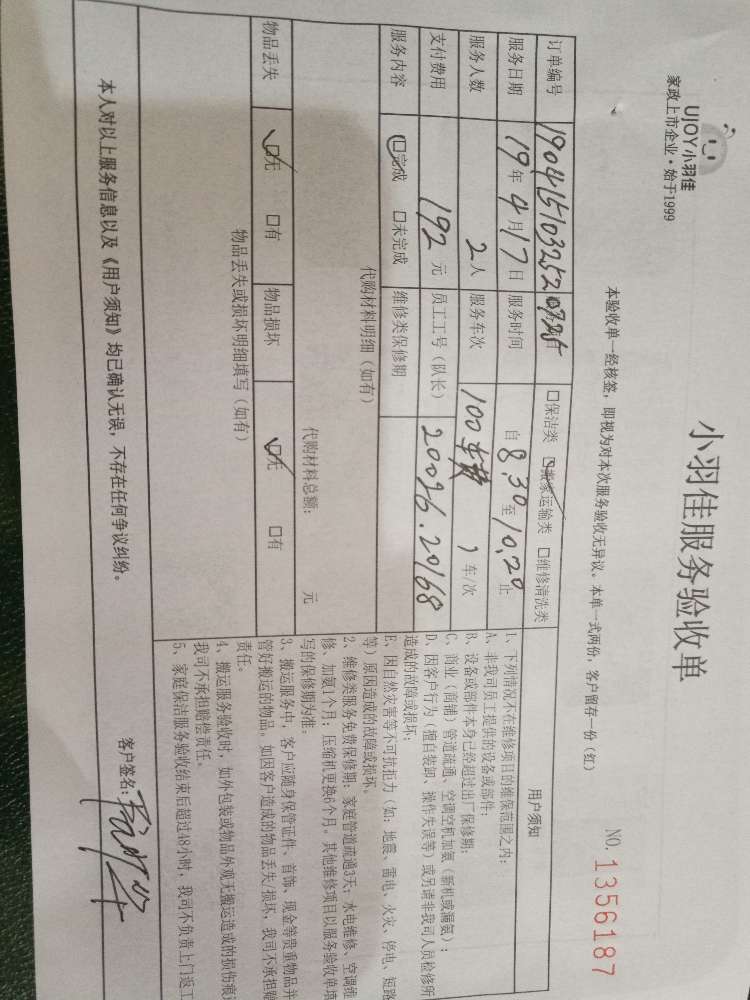 UJOY小羽佳
家政上市企业·始于1999
小羽佳服务验收单
本验收单一经核签，即视为对本次服务验收无异议。本单一式两份，客户留存一份（红）
NO. 1356187
订单编号 190415103252 0726
□保洁类 ☑搬家运输类 □维修清洗类
服务日期 19年4月17日 服务时间 自8.30至10.20止
服务人数 2人 服务车次 100车费 1车/次
支付费用 192元 员工工号（队长） 20026.20168
服务内容 ☑完成 □未完成 维修类保修期
代购材料明细（如有）
代购材料总额： 元
物品丢失 ☑无 □有 物品损坏 ☑无 □有
物品丢失或损坏明细填写（如有）
用户须知
1、下列情况不在维修项目的维保范围之内：
A、非我司员工提供的设备或部件；
B、设备或部件本身已经超过出厂保修期；
C、商业（商铺）管道疏通、空调空机加氨（新机或漏氨）；
D、因客户行为（擅自装卸、操作失误等）或另请非我司人员检修所
造成的故障或损坏；
E、因自然灾害等不可抗拒力（如：地震、雷电、火灾、停电、短路
等）原因造成的故障或损坏。
2、维修类服务免费保修期：家庭管道疏通3天；水电维修、空调维
修、加氨1个月；压缩机更换6个月。其他维修项目以服务验收单填
写的保修期为准；
3、搬运服务中，客户应随身保管证件、首饰、现金等贵重物品并
管好搬运的物品。如因客户造成的物品丢失/损坏，我司不承担赔
责任。
4、搬运服务验收时，如外包装或物品外观无搬运造成的损伤痕
我司不承担赔偿责任。
5、家庭保洁服务验收结束后超过48小时，我司不负责上门返工
本人对以上服务信息以及《用户须知》均已确认无误，不存在任何争议纠纷。
客户签名：